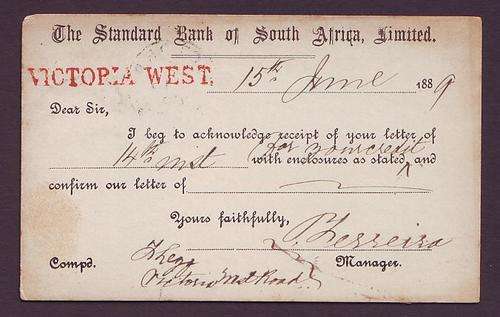 The Standard Bank of South Africa, Limited.
VICTORIA WEST, 15th June 1889
Dear Sir,
I beg to acknowledge receipt of your letter of
for your credit
14th inst with enclosures as stated, and
confirm our letter of
Yours faithfully,
Ferreira
Compd. Manager.
Victoria West Road